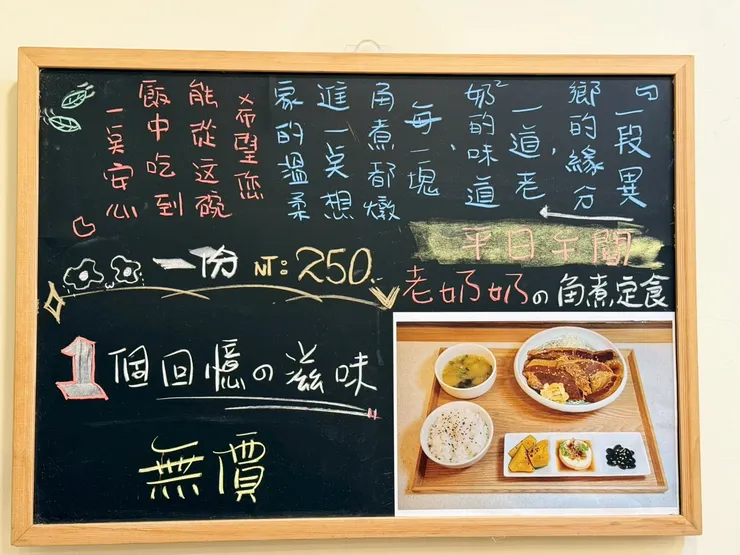 『一段異
鄉的緣分，
一道老
奶²的味道，
每一塊
角煮都燉
進一奌想
家的溫柔
希望您
能從这碗
飯中吃到
一奌安心』
平日午間
老奶奶の角煮定食
一份 NT: 250.
1個回憶の滋味
無價